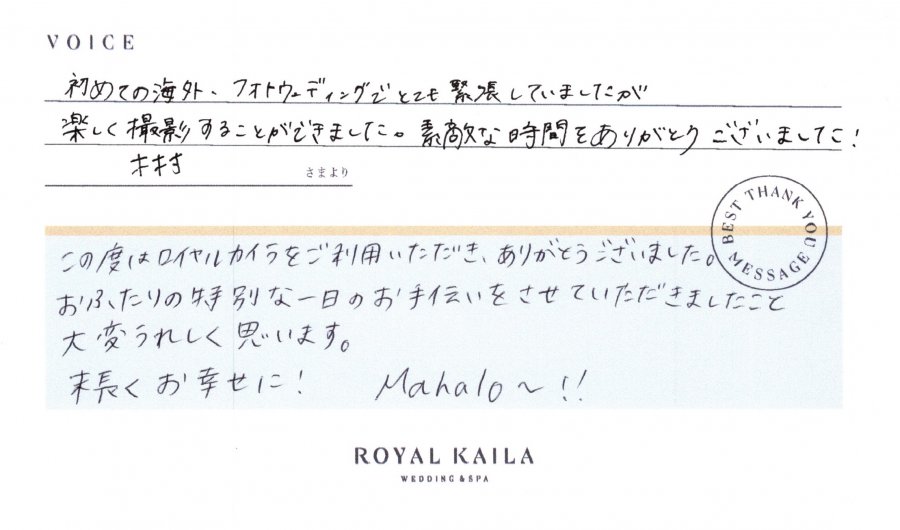 VOICE
初めての海外、フォトウェディングでとても緊張していましたが
楽しく撮影することができました。素敵な時間をありがとうございました!
木村
さまより
BEST THANK YOU MESSAGE
この度はロイヤルカイラをご利用いただき、ありがとうございました。
おふたりの特別な一日のお手伝いをさせていただきましたこと
大変うれしく思います。
末長くお幸せに! Mahalo~!!
ROYAL KAILA
WEDDING & SPA